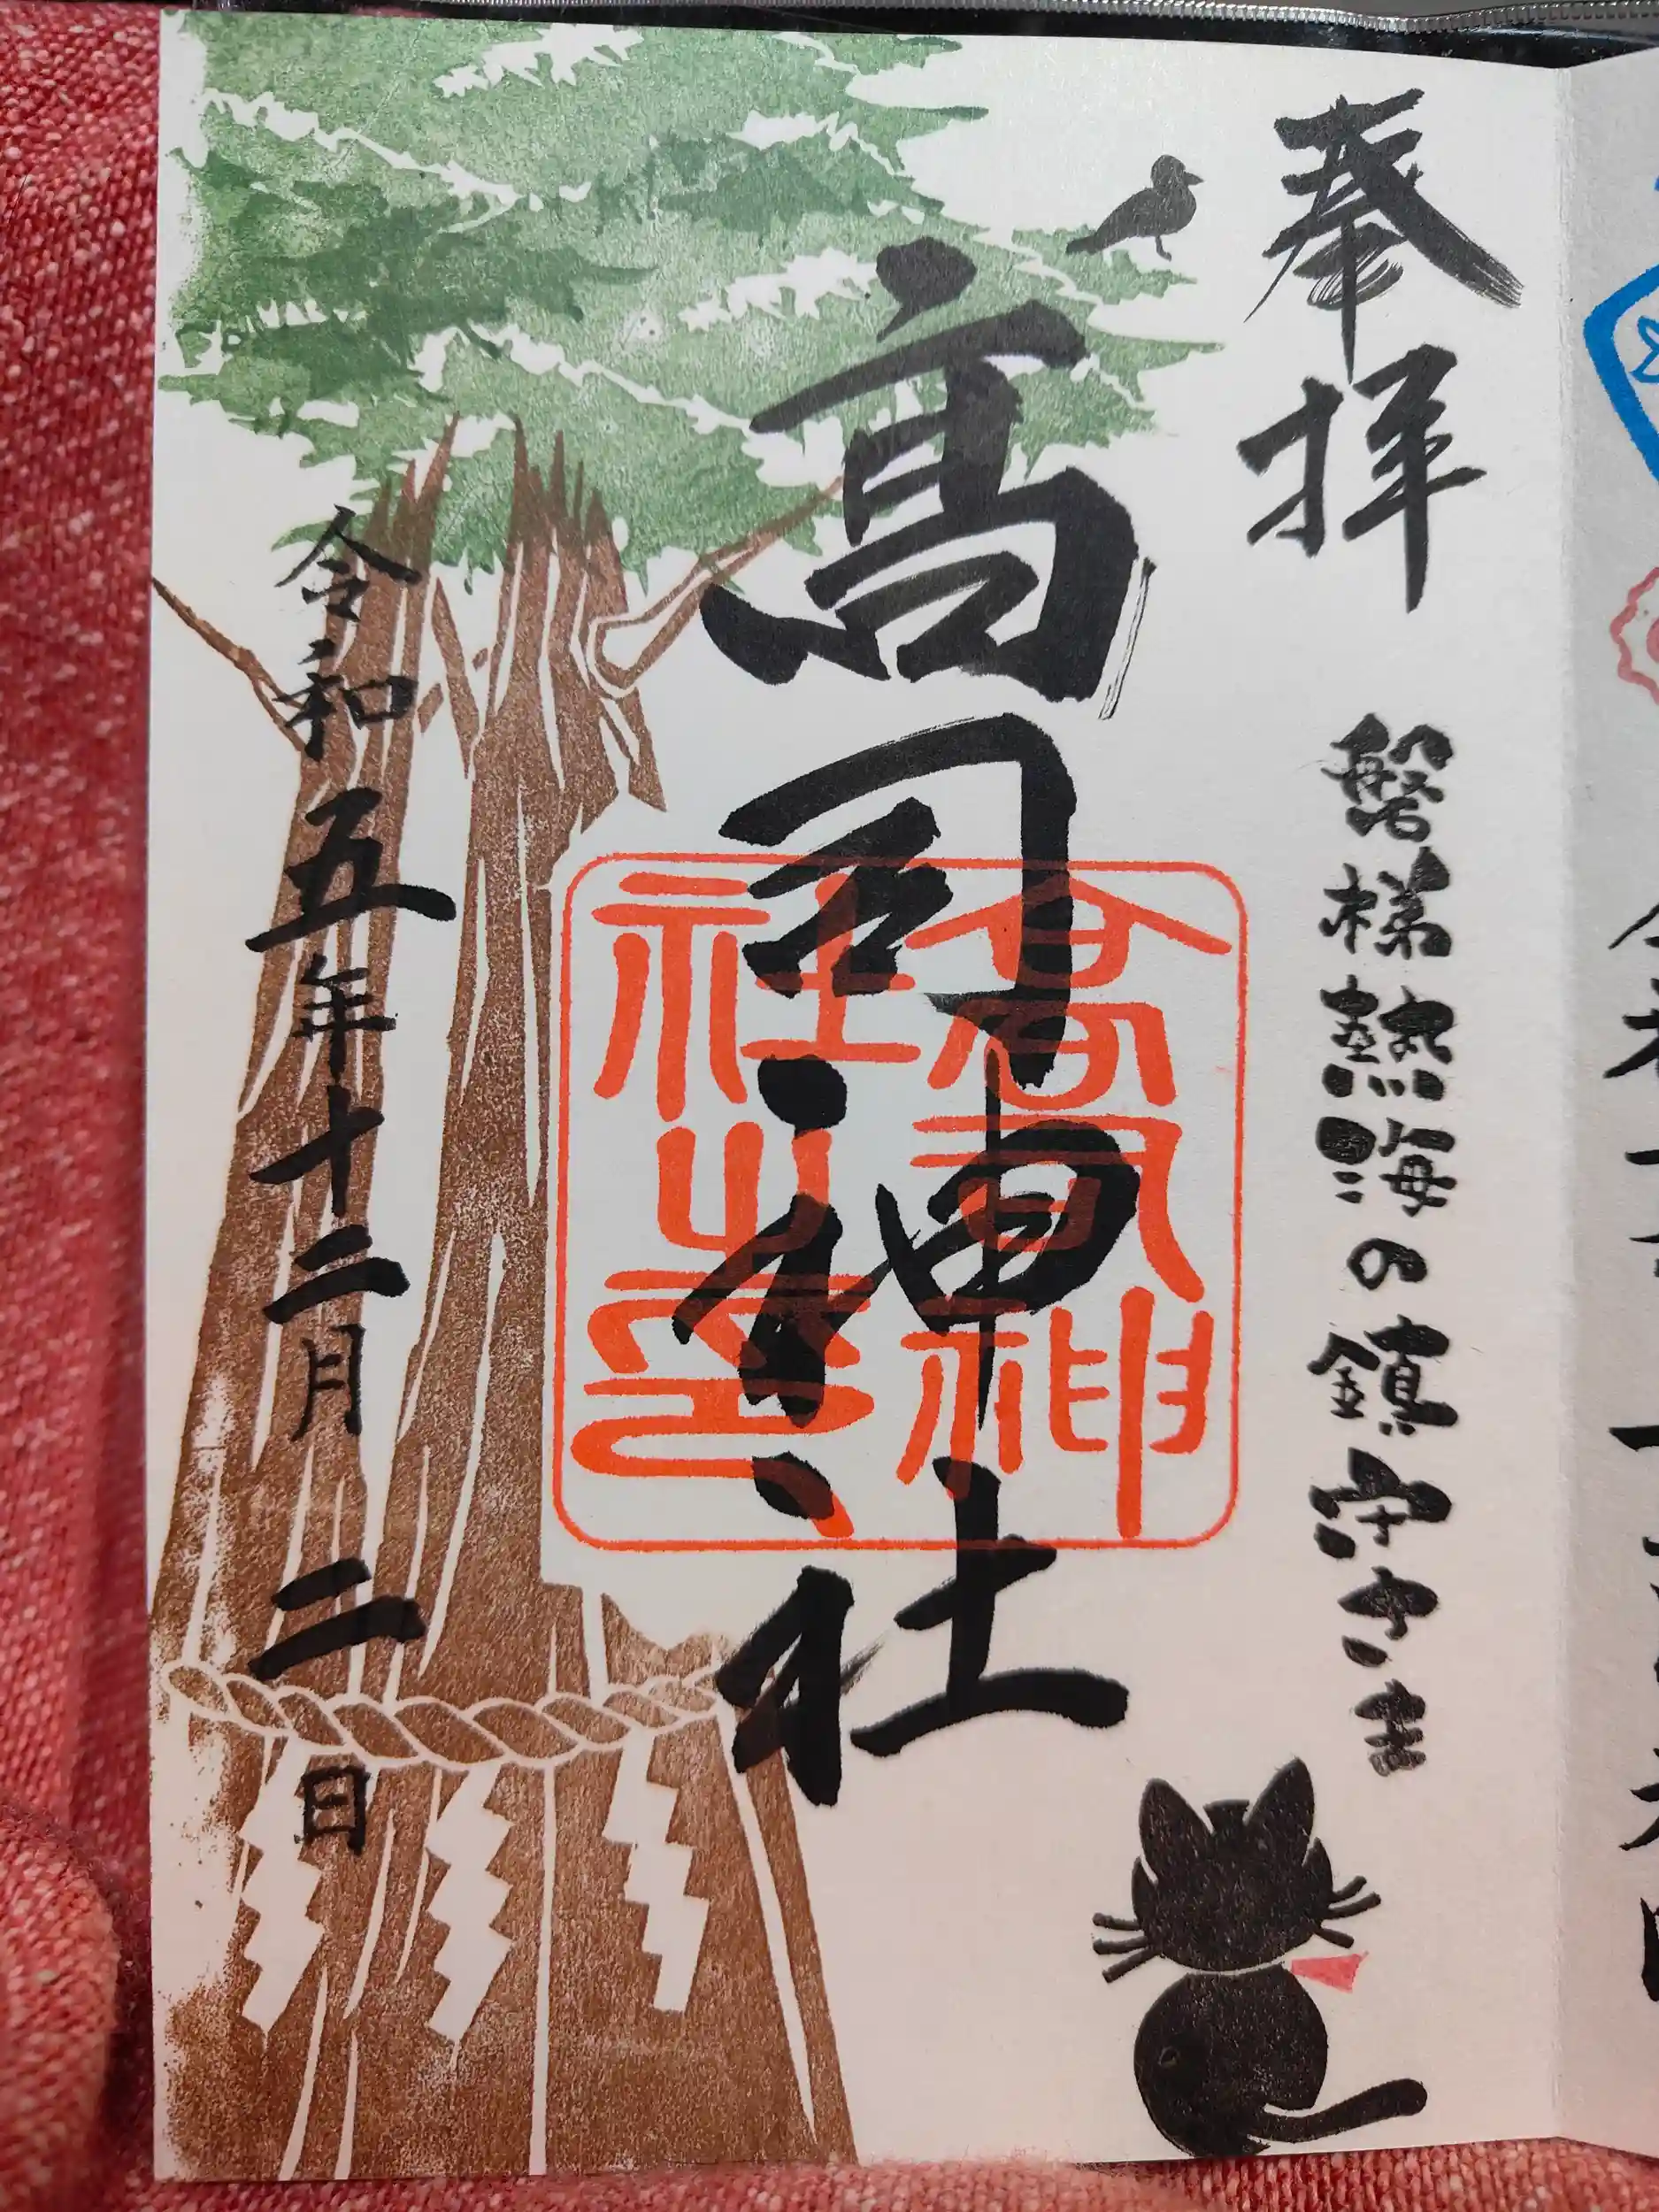 奉拝
磐梯熱海の鎮守さま
髙司神社
高司神
社之印
令和五年十二月二日